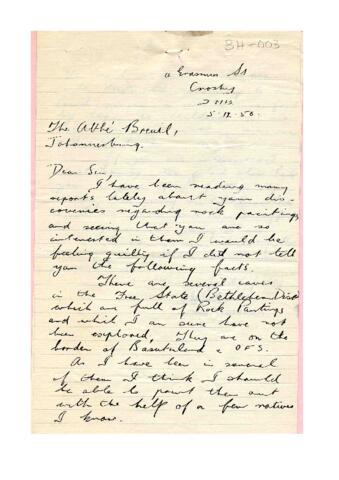 BH-003
Erasmus St
Crosby
J HB
5.12.50.
The Abbé Breuil,
Johannesburg.
Dear Sir,
I have been reading many
reports lately about your dis-
coveries regarding rock paintings
and seeing that you are so
interested in them I would be
feeling guilty if I did not tell
you the following facts.
There are several caves
in the Free State (Bethlehem Dist)
which are full of Rock Paintings
and which I am sure have not
been explored, They are on the
border of Basutoland & OFS.
As I have been in several
of them I think I should
be able to point them out
with the help of a few natives
I know.